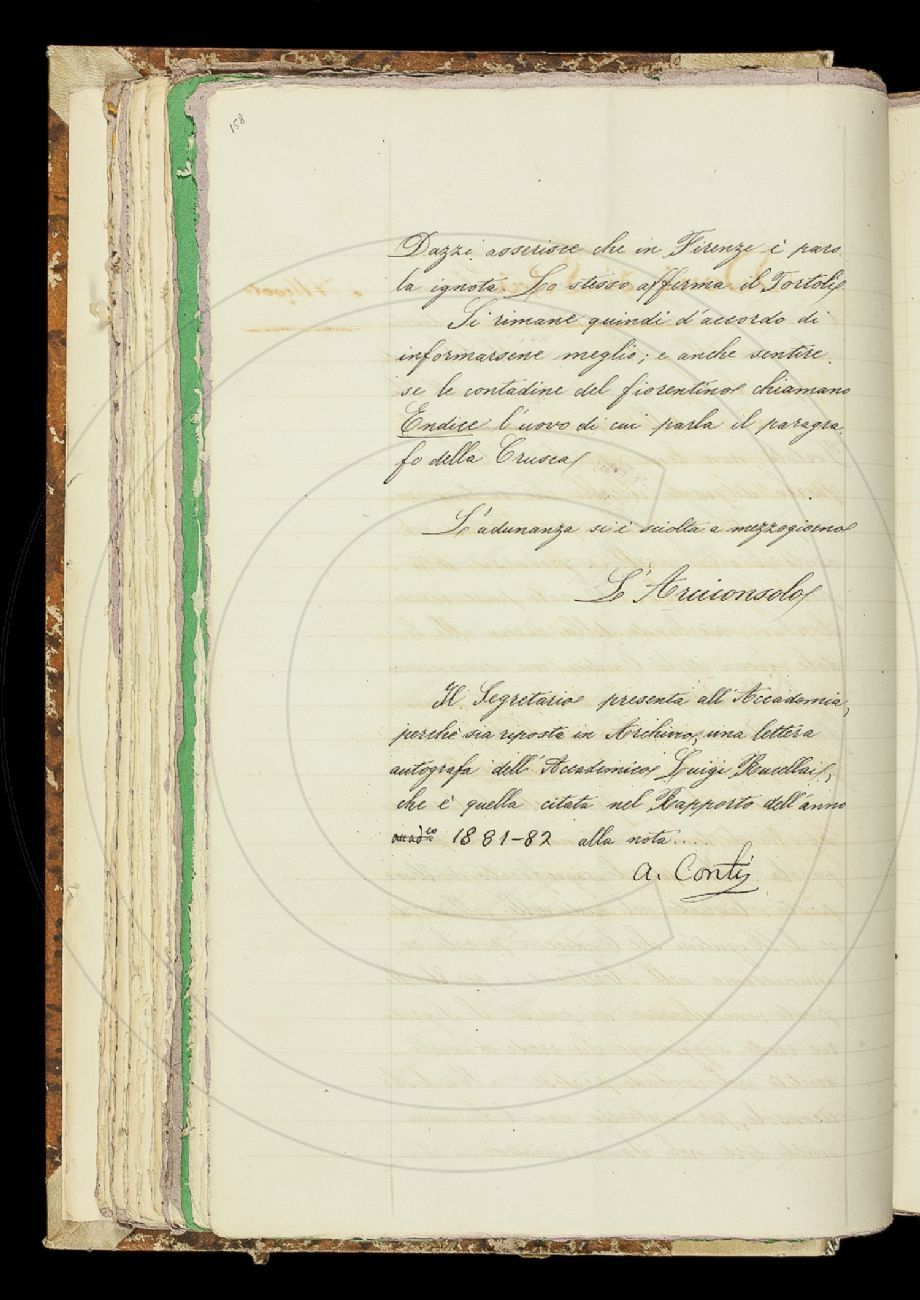 158
Dazzi asserisce che in Firenze è paro
la ignota. Lo stesso afferma il Tortoli.
Si rimane quindi d'accordo di
informarsene meglio; e anche sentire
se le contadine del fiorentino chiamano
Endice l'uovo di cui parla il paragra
fo della Crusca.
L'adunanza si è sciolta a mezzogiorno
L'Arciconsolo
Il Segretario presenta all'Accademia,
perchè sia riposta in Archivio, una lettera
autografa dell'Accademico Luigi Rucellai,
che è quella citata nel Rapporto dell'anno
1881-82 alla nota....
A. Conti